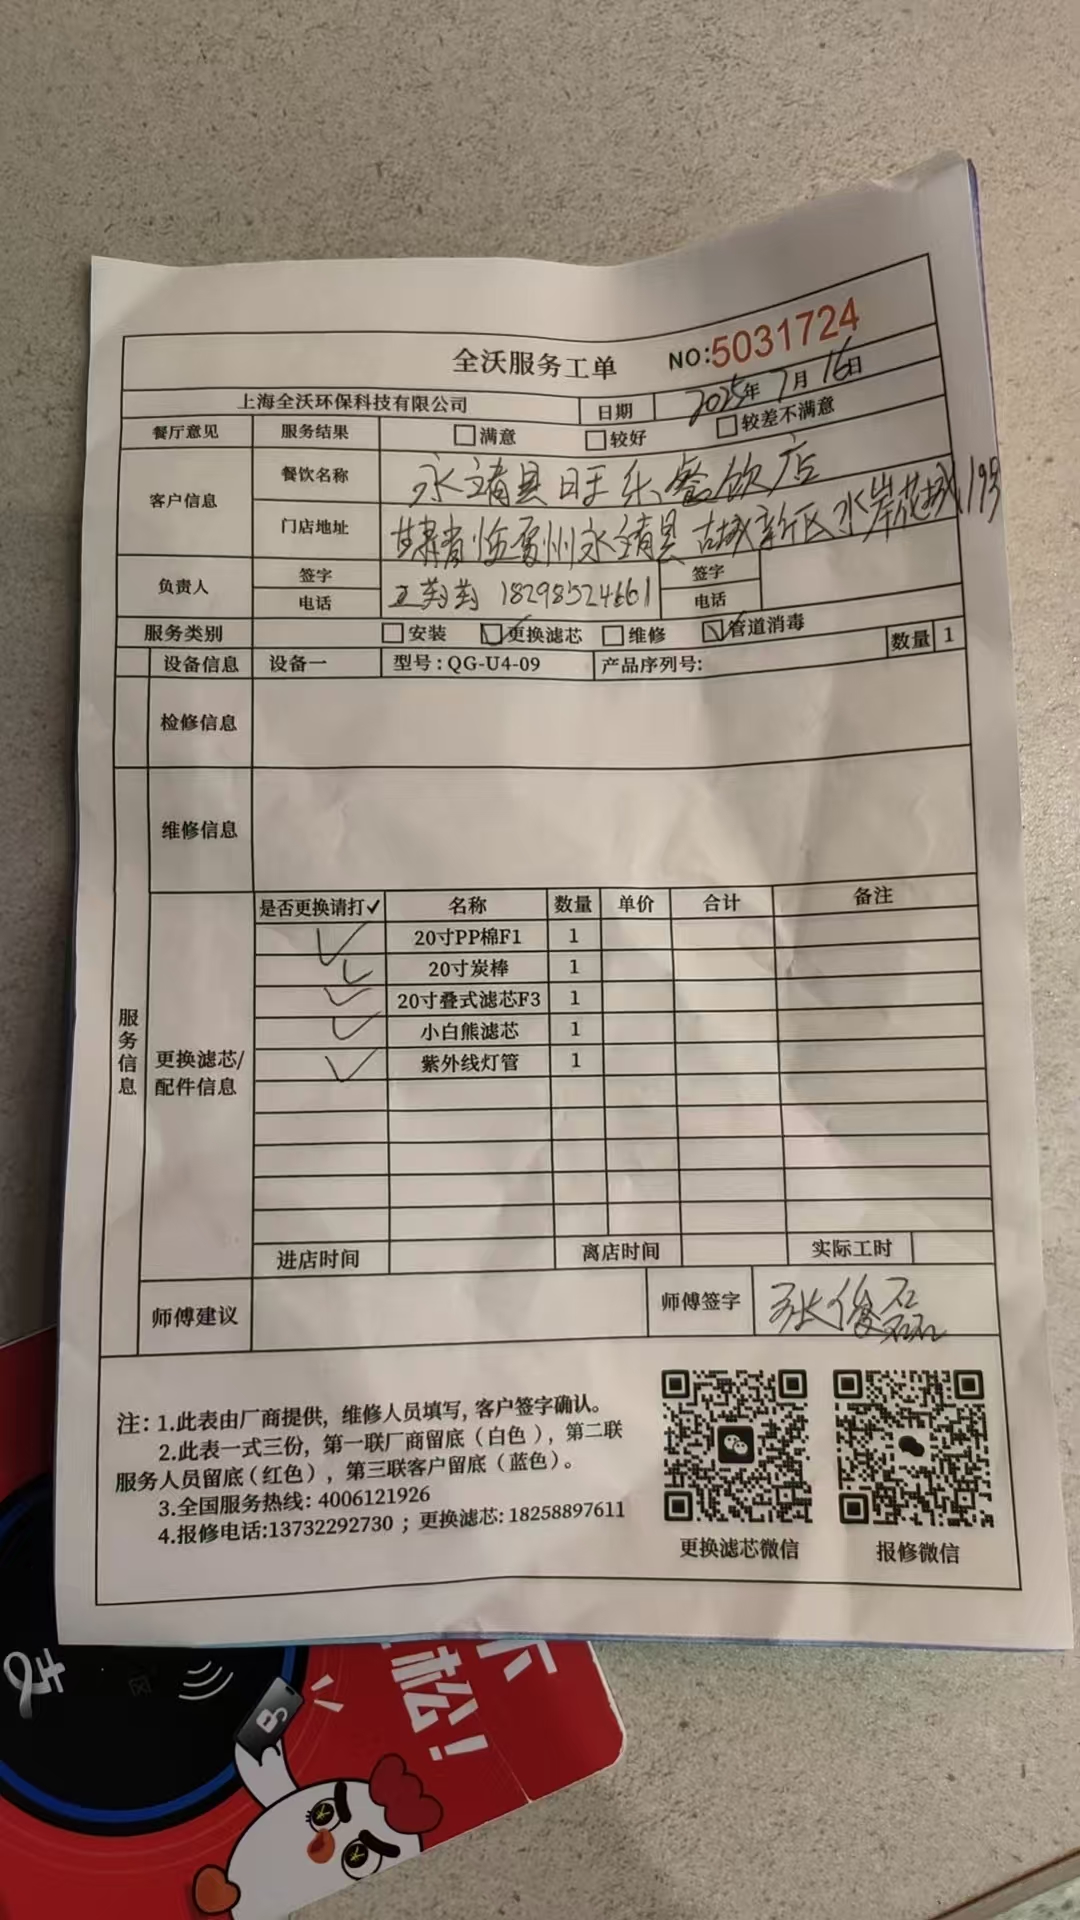 全沃服务工单 NO:5031724
上海全沃环保科技有限公司 日期 2025年7月16日
餐厅意见 服务结果 满意 较好 较差不满意
客户信息 餐饮名称 永靖县旺乐餐饮店
门店地址 甘肃省临夏州永靖县古城新区水岸花城
负责人 签字 签字
电话 18298524661 电话
服务类别 安装 更换滤芯 维修 管道消毒
设备信息 设备一 型号:QG-U4-09 产品序列号: 数量 1
检修信息
维修信息
服务信息
更换滤芯/
配件信息
是否更换请打✓ 名称 数量 单价 合计 备注
✓ 20寸PP棉F1 1
✓ 20寸炭棒 1
✓ 20寸叠式滤芯F3 1
✓ 小白熊滤芯 1
✓ 紫外线灯管 1
进店时间 离店时间 实际工时
师傅建议 师傅签字 张俊磊
注:1.此表由厂商提供,维修人员填写,客户签字确认。
2.此表一式三份,第一联厂商留底(白色),第二联
服务人员留底(红色),第三联客户留底(蓝色)。
3.全国服务热线:4006121926
4.报修电话:13732292730;更换滤芯:18258897611
更换滤芯微信 报修微信
支
松!